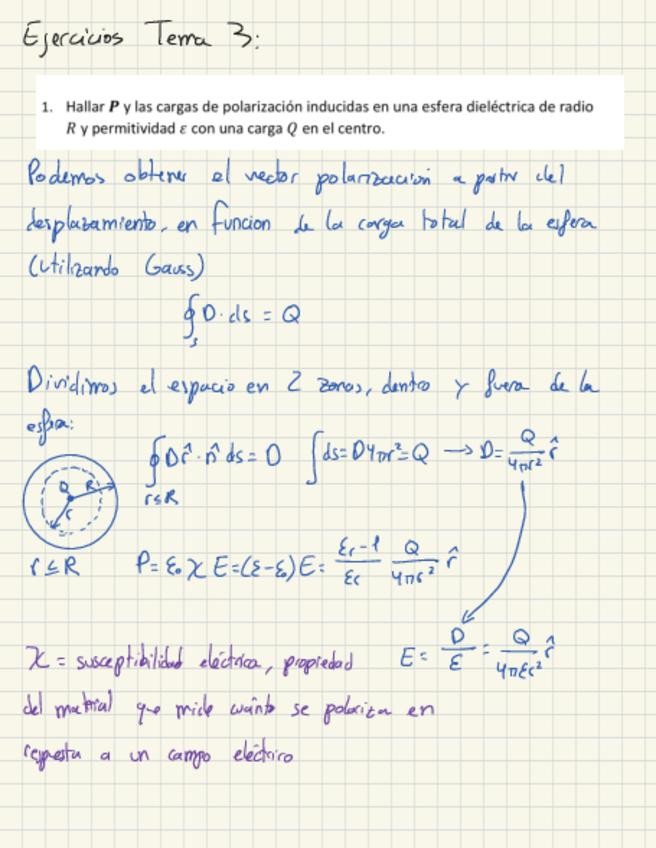 Ejercicios Tema 3:
1. Hallar P y las cargas de polarización inducidas en una esfera dieléctrica de radio
R y permitividad ε con una carga Q en el centro.
Podemos obtener el vector polarización a partir del
desplazamiento, en funcion de la carga total de la esfera
(Utilizando Gauss)
∮_s D · ds = Q
Dividimos el espacio en 2 zonas, dentro y fuera de la
esfera:
∮_{r≤R} D r̂ · n̂ ds = D ∫ ds = D 4πr² = Q → D = Q/(4πr²) r̂
Q R r
r ≤ R P = ε₀ χ E = (ε - ε₀) E = (εr - 1)/εr Q/(4πr²) r̂
E = D/ε = Q/(4πεr²) r̂
χ = susceptibilidad eléctrica, propiedad
del material que mide cuánto se polariza en
respuesta a un campo eléctrico